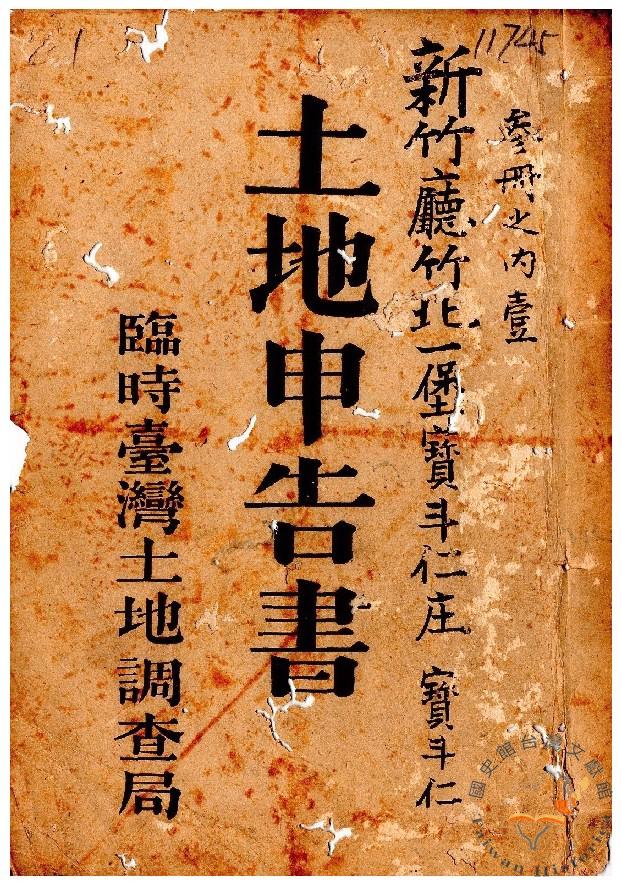 11745
參冊之內壹
新竹廳竹北一堡寶斗仁庄 寶斗仁
土地申告書
臨時臺灣土地調查局
國史館台灣文獻館
Taiwan Historica